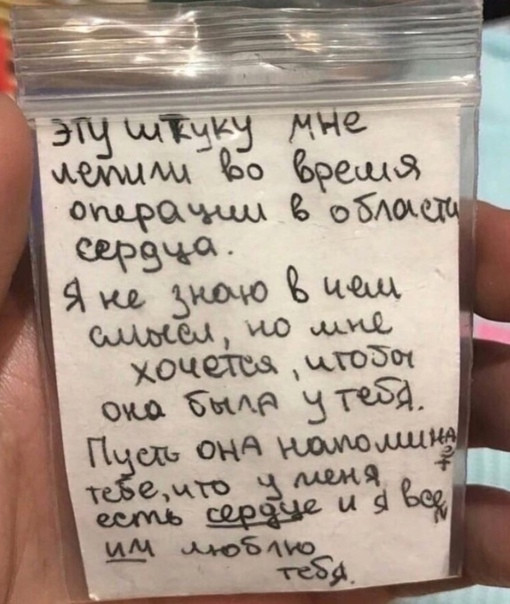 эту штуку мне
лепили во время
операции в области
сердца.
Я не знаю в чем
смысл, но мне
хочется, чтобы
она была у тебя.
Пусть она напоминает
тебе, что у меня
есть сердце и я всем
им люблю
тебя.